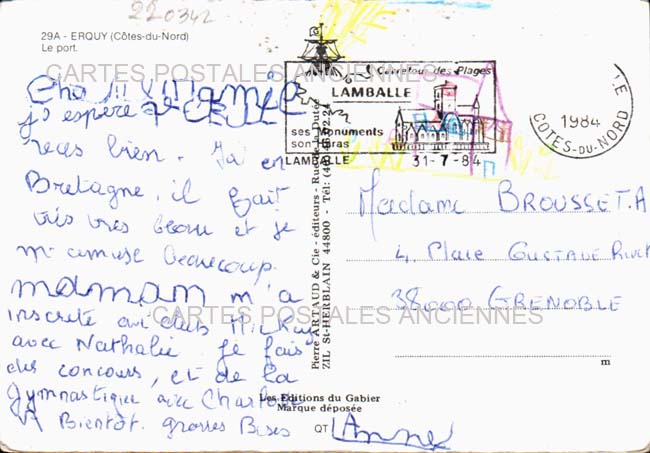 220342
29A - ERQUY (Côtes-du-Nord)
Le port.
CARTES POSTALES ANCIENNES
Mamie
j'espère que
vas bien. J'ai en
Bretagne, il fait
très très beau et je
m'amuse beaucoup.
maman m'a
inscrete au club Mickey
avec Nathalie. Je fais
des concours, et de la
gymnastique avec Charlotte
A Bientot. grosses Bises
Anne
Pierre ARTAUD & Cie - éditeurs - Rue de la
ZIL St-HERBLAIN 44800 - Tél: (40)
Les Editions du Gabier
Marque déposée
QT
Carrefour des Plages
LAMBALLE
ses Monuments
son Haras
LAMBALLE
31-7-84
1984
COTES-DU-NORD
Madame BROUSSET.A
4, Place GUSTAVE
38000 GRENOBLE
CARTES POSTALES ANCIENNES
m